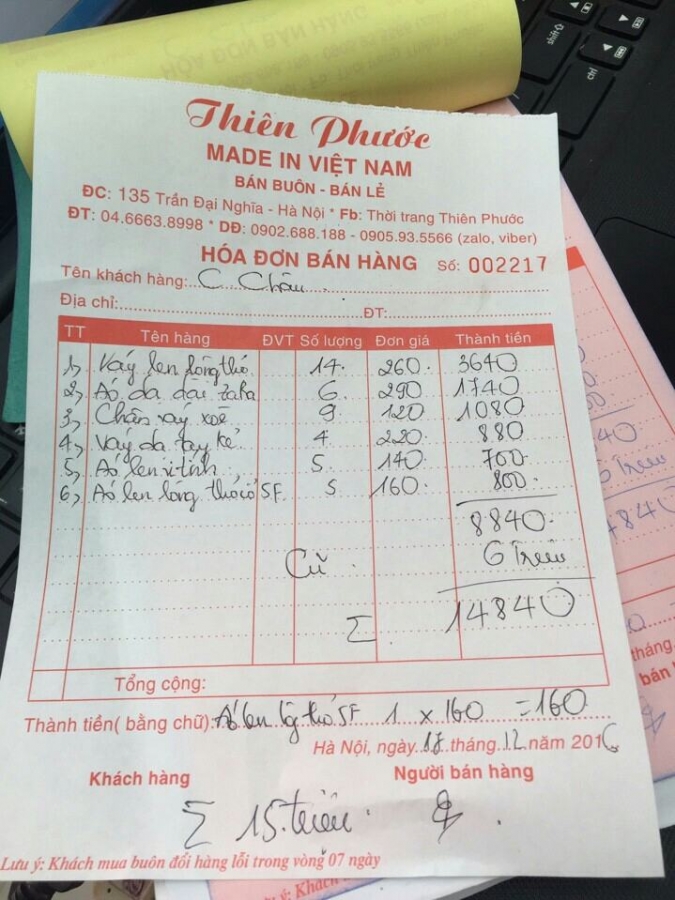 HÓA ĐƠN BÁN HÀNG
Thiên Phước
MADE IN VIỆT NAM
BÁN BUÔN - BÁN LẺ
ĐC: 135 Trần Đại Nghĩa - Hà Nội * Fb: Thời trang Thiên Phước
ĐT: 04.6663.8998 * DĐ: 0902.688.188 - 0905.93.5566 (zalo, viber)
HÓA ĐƠN BÁN HÀNG Số: 002217
Tên khách hàng: C Châu
Địa chỉ: ĐT:
TT Tên hàng ĐVT Số lượng Đơn giá Thành tiền
1, Váy len lông thỏ 14 260 3640
2, Áo da dài zara 6 290 1740
3, Chân váy xoè 9 120 1080
4, Váy da tay kẻ 4 220 880
5, Áo len vi tính 5 140 700
6, Áo len lông thỏ cổ SF 5 160 800
8840
Cũ 6 Triệu
Σ 14840
Tổng cộng:
Thành tiền( bằng chữ): Áo len lg thỏ SF 1 x 160 = 160
Hà Nội, ngày tháng 12 năm 2016
Khách hàng Người bán hàng
Σ 15 triệu
Lưu ý: Khách mua buôn đổi hàng lỗi trong vòng 07 ngày